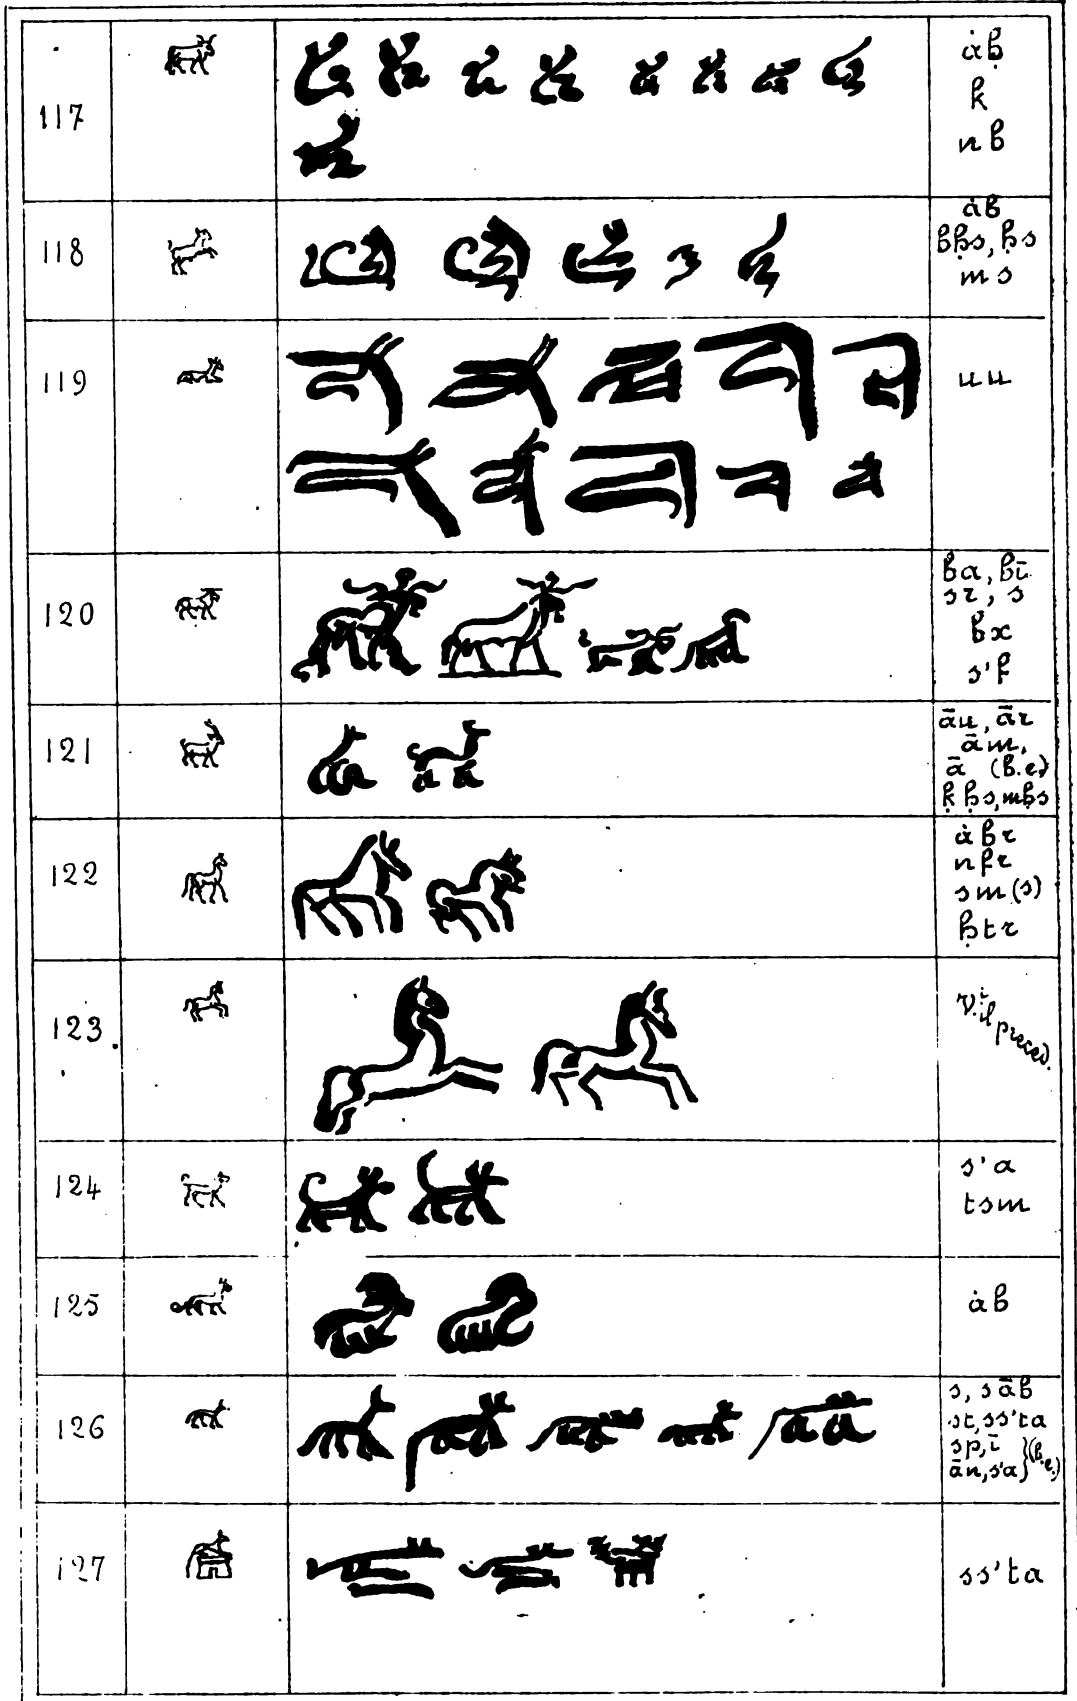 117
ȧḅ
k
nb
118
ȧb
bḥs, ḥs
ms
119
uu
120
ba, bī
sr, s
bx
s'f
121
āu, ār
ām,
ā (b.e.)
ḳḥs, mḥs
122
ȧbr
nfr
sm(s)
ḥtr
123
V. il
preced.
124
s'a
tsm
125
ȧb
126
s, sāb
st, ss'ta
sp, ī
ān, s'a} (b.e.)
127
ss'ta